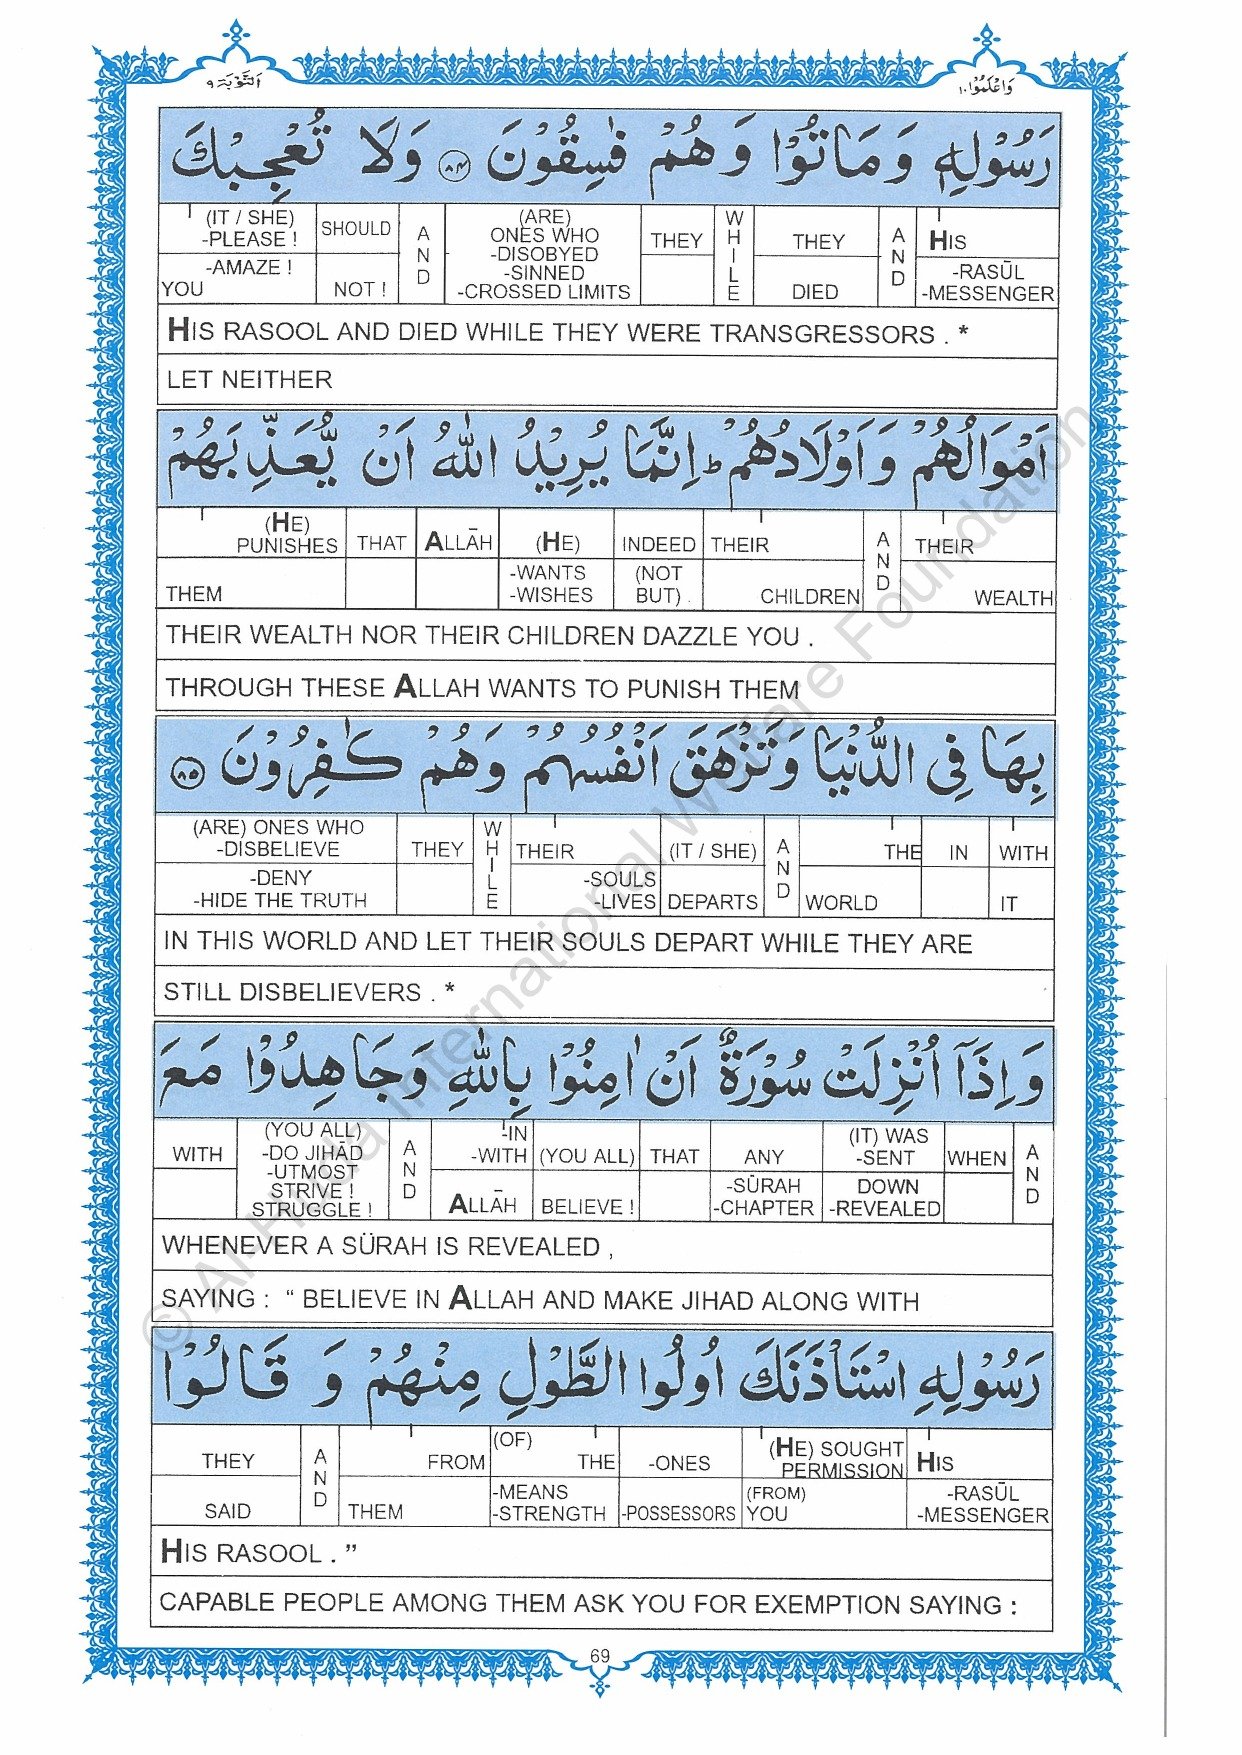 اَلتَّوْبَة ٩
وَاعْلَمُوْا ١٠
رَسُوْلِهٖ وَمَاتُوْا وَهُمْ فٰسِقُوْنَ ﴿٨٤﴾ وَلَا تُعْجِبْكَ
(IT / SHE) -PLEASE ! SHOULD AND (ARE) ONES WHO -DISOBYED -SINNED -CROSSED LIMITS THEY WHILE THEY AND HIS
-AMAZE ! YOU NOT ! DIED -RASŪL -MESSENGER
HIS RASOOL AND DIED WHILE THEY WERE TRANSGRESSORS . *
LET NEITHER
اَمْوَالُهُمْ وَاَوْلَادُهُمْ ؕ اِنَّمَا يُرِيْدُ اللّٰهُ اَنْ يُّعَذِّبَهُمْ
(HE) PUNISHES THAT ALLĀH (HE) INDEED THEIR AND THEIR
THEM -WANTS -WISHES (NOT BUT) . CHILDREN WEALTH
THEIR WEALTH NOR THEIR CHILDREN DAZZLE YOU .
THROUGH THESE ALLAH WANTS TO PUNISH THEM
بِهَا فِي الدُّنْيَا وَتَزْهَقَ اَنْفُسُهُمْ وَهُمْ كٰفِرُوْنَ ﴿٨٥﴾
(ARE) ONES WHO -DISBELIEVE THEY WHILE THEIR (IT / SHE) AND THE IN WITH
-DENY -HIDE THE TRUTH -SOULS -LIVES DEPARTS WORLD IT
IN THIS WORLD AND LET THEIR SOULS DEPART WHILE THEY ARE
STILL DISBELIEVERS . *
وَاِذَآ اُنْزِلَتْ سُوْرَةٌ اَنْ اٰمِنُوْا بِاللّٰهِ وَجَاهِدُوْا مَعَ
WITH (YOU ALL) -DO JIHĀD -UTMOST STRIVE ! STRUGGLE ! AND -IN -WITH (YOU ALL) THAT ANY (IT) WAS -SENT WHEN AND
ALLĀH BELIEVE ! -SŪRAH -CHAPTER DOWN -REVEALED
WHENEVER A SÜRAH IS REVEALED ,
SAYING : “ BELIEVE IN ALLAH AND MAKE JIHAD ALONG WITH
رَسُوْلِهِ اسْتَاْذَنَكَ اُولُوا الطَّوْلِ مِنْهُمْ وَ قَالُوْا
THEY AND FROM (OF) THE -ONES (HE) SOUGHT PERMISSION HIS
SAID THEM -MEANS -STRENGTH -POSSESSORS (FROM) YOU -RASŪL -MESSENGER
HIS RASOOL . ”
CAPABLE PEOPLE AMONG THEM ASK YOU FOR EXEMPTION SAYING :
69
© Al-Huda International Welfare Foundation